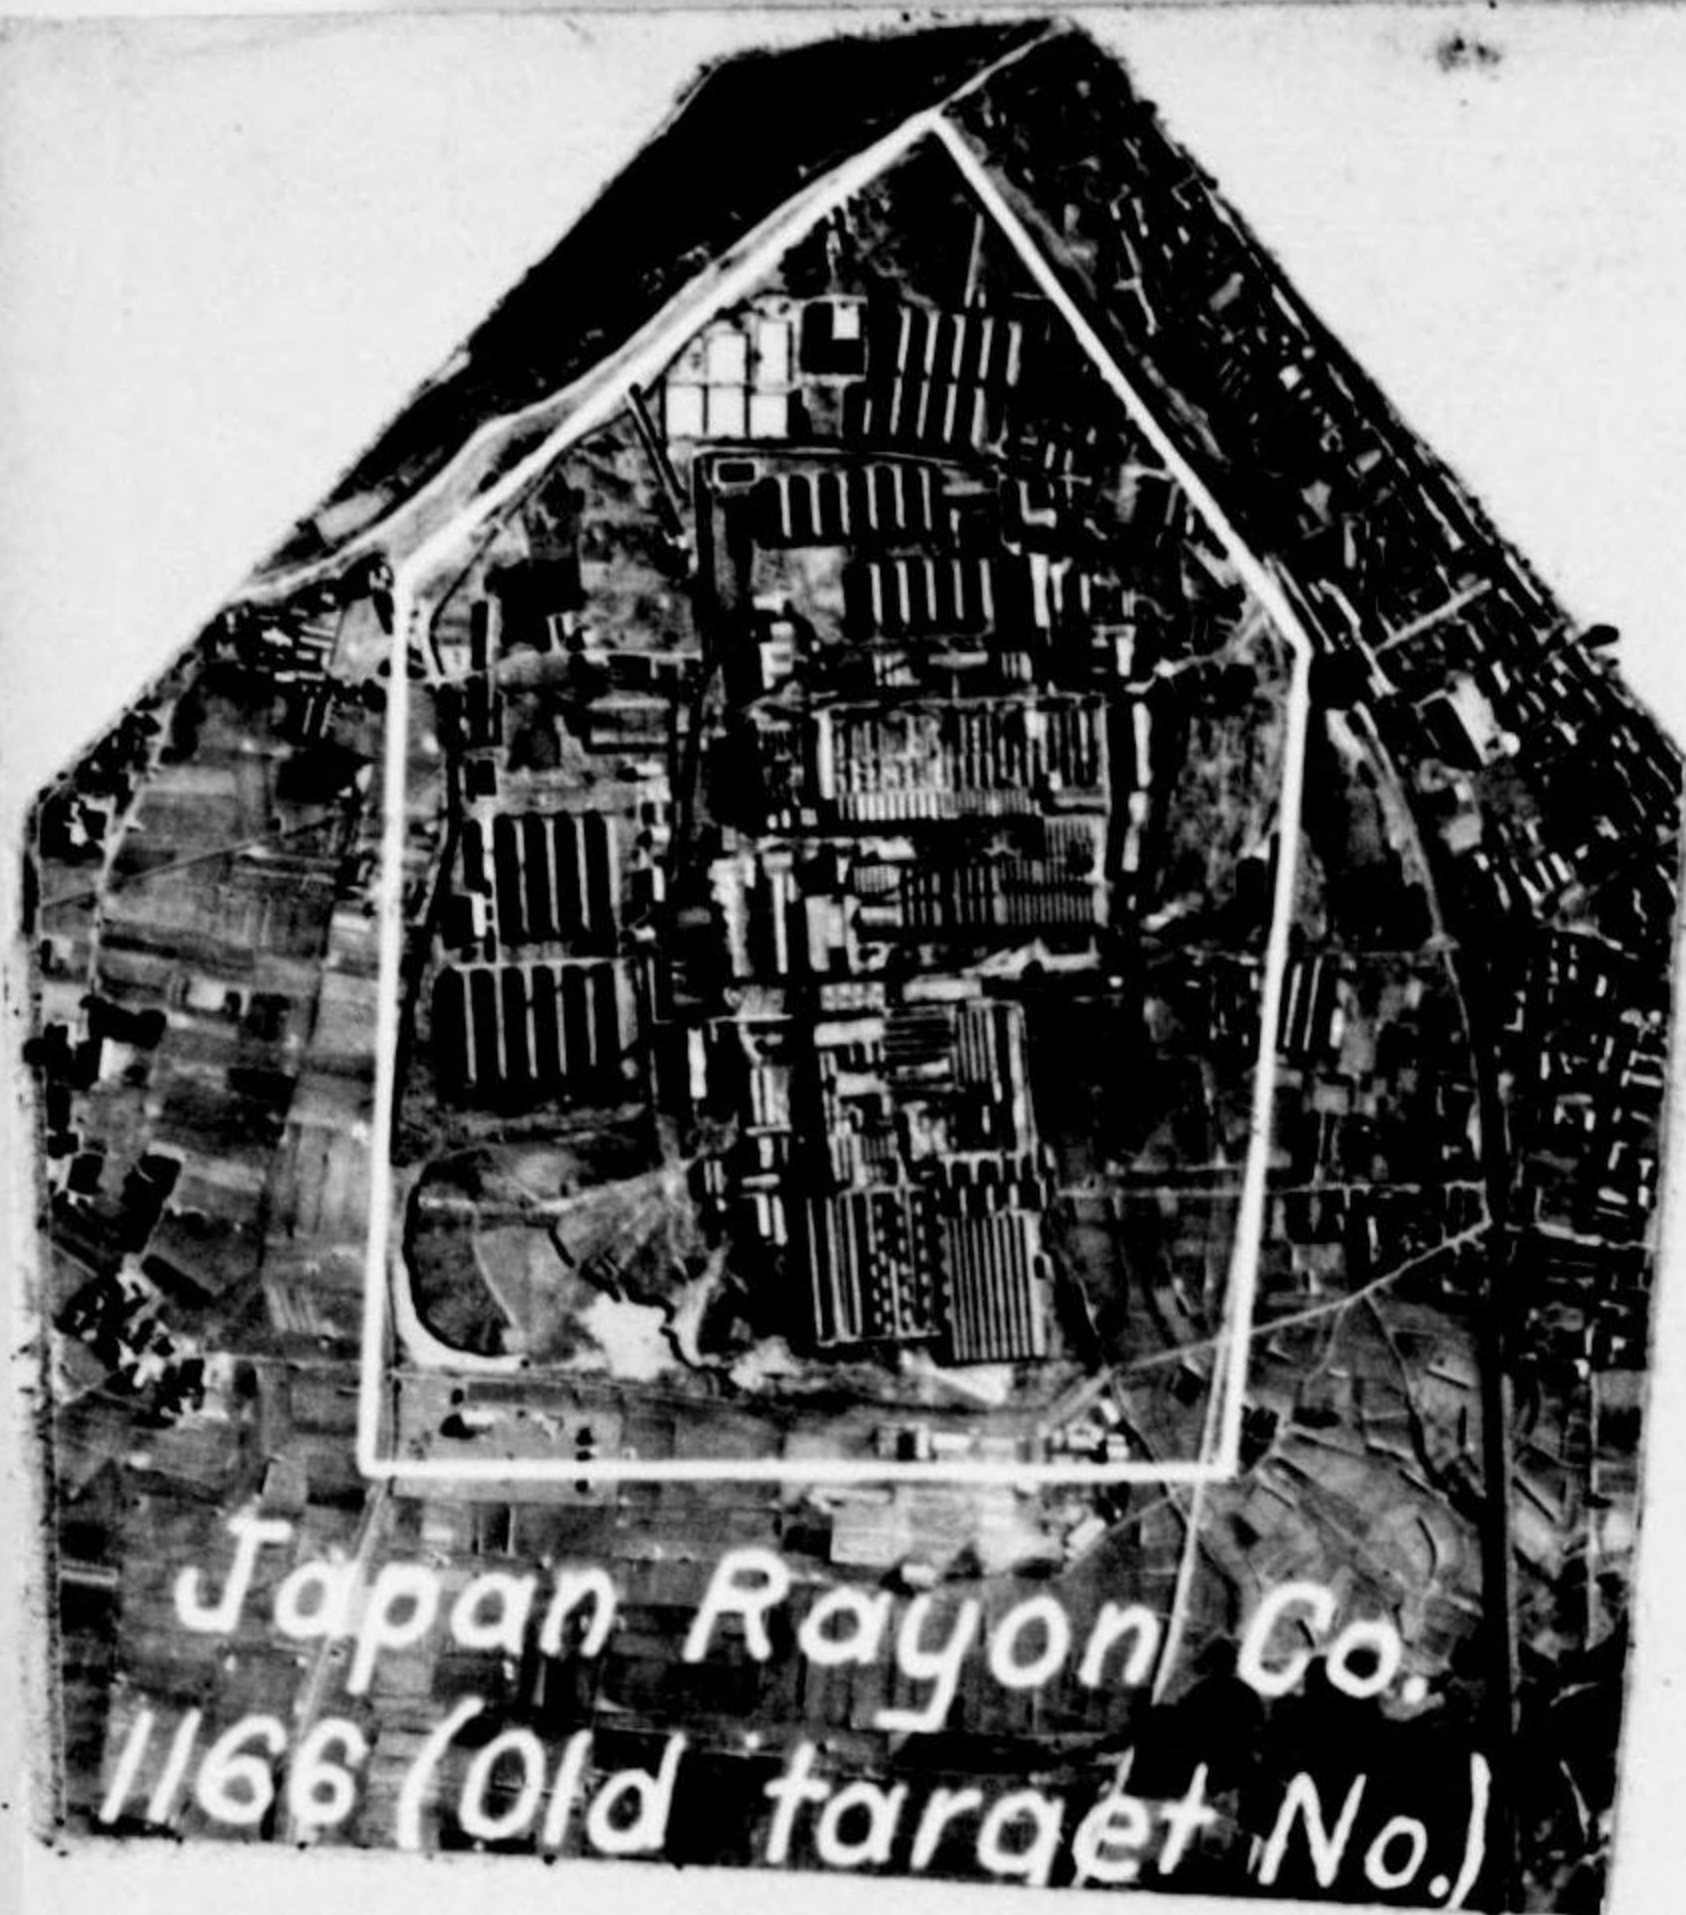 Japan Rayon Co.
1166 (Old target No.)